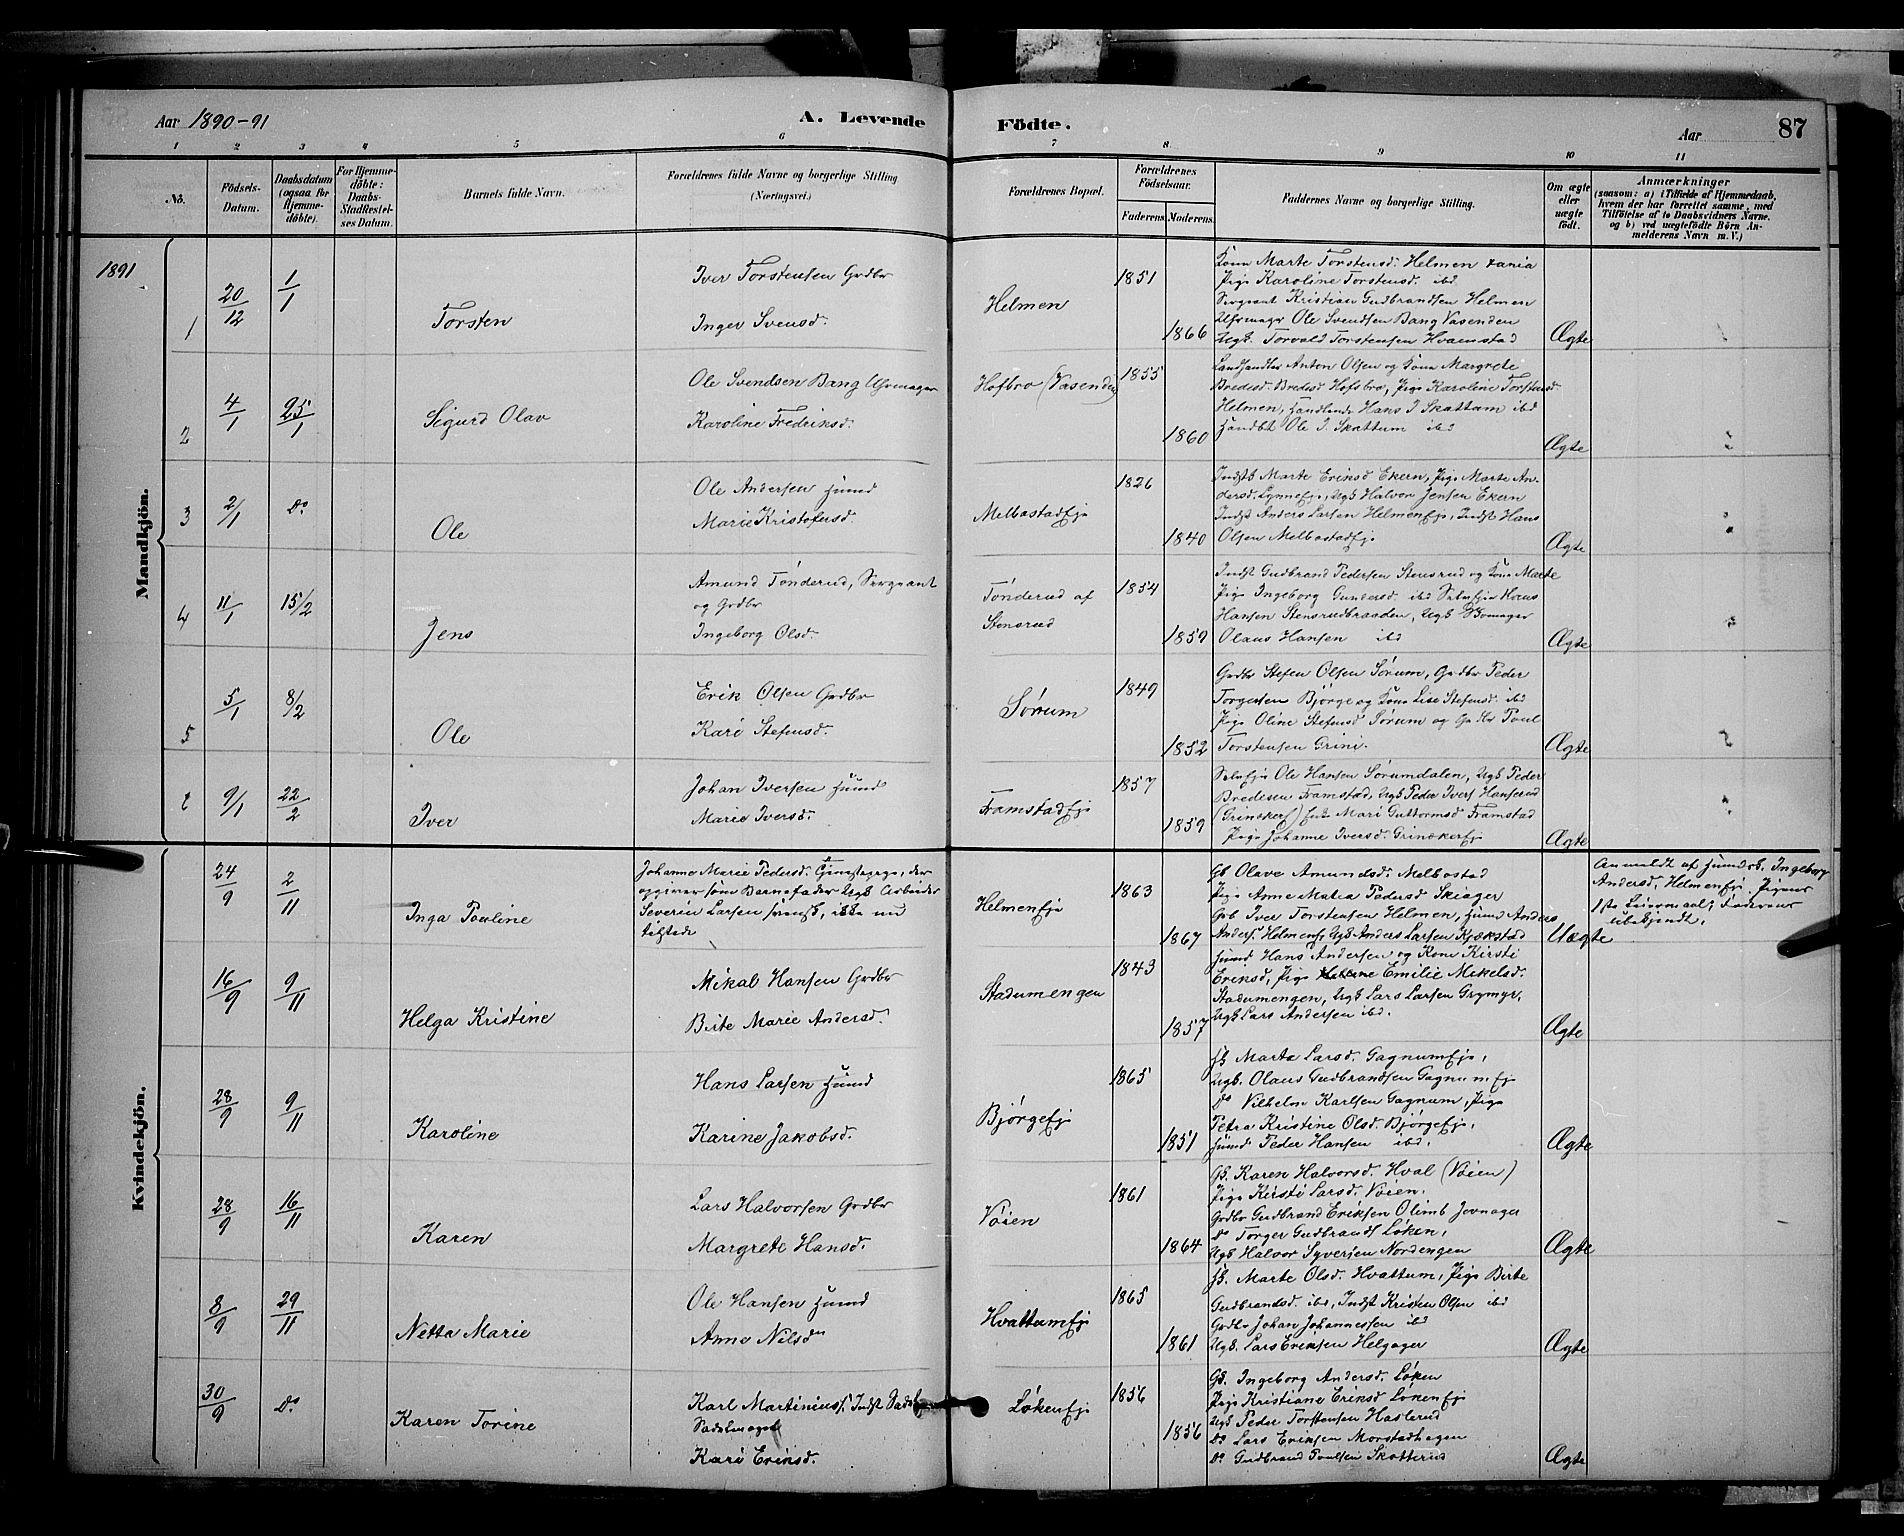 Aar 1890-91
A. Levende
Födte.
Aar
87
1 2 3 4 5 6 7 8 9 10 11
No.
Födsels-
Datum.
Daabsdatum
(ogsaa for
Hjemme-
döbte).
For Hjemme-
döbte:
Daabs-
Stadfestel-
ses Datum.
Barnets fulde Navn.
Forældrenes fulde Navne og borgerlige Stilling
(Næringsvei.)
Forældrenes Bopæl.
Forældrenes
Födselsaar.
Faderens. Moderens.
Faddernes Navne og borgerlige Stilling.
Om ægte
eller
uægte
födt.
Anmærkninger
(saasom: a) i Tilfælde af Hjemmedaab,
hvem der har forrettet samme, med
Tilföielse af to Daabsvidners Navne.
og b) ved uægtefödte Börn An-
melderens Navn m. V.)
Mandkjön.
1891
1 20/12 1/1
Torsten
Iver Torstensen Grdbr
Inger Svensd.
Helmen
1851
1866
Kone Marte Torstensd. Helmen
Pige Karoline Torstensd. ibd
Sergeant Kristian Gudbrandsen Helmen
Uhrmager Ole Svendsen Bang Vasenden
Ugk. Torvald Torstensen Hvamstad
Ægte
2 4/1 25/1
Sigurd Olav
Ole Svendsen Bang Uhrmager
Karoline Fredriksd.
Hofbro (Vasenden)
1855
1860
Landhandler Anton Olsen og Kone Margrete
Bredesd. Hofsbro, Pige Karoline Torstensd
Helmen, Handlende Hans I Skattum ibd
Handbt Ole I. Skattum ibd
Ægte
3 2/1 Do
Ole
Ole Andersen Husmd
Marie Kristofersd.
Melbostadeje
1826
1840
Indstk Marte Eriksd Ekern, Pige Marte An-
dersd. Lynneeje, Ugk Halvor Jensen Ekern
Indst Anders Larsen Helmeneje, Indst Hans
Olsen Melbostadeje
Ægte
4 11/1 15/2
Jens
Amund Tönderud, Sergeant
og Grdbr
Ingeborg Olsd.
Tönderud af
Stensrud
1854
1859
Indst Gudbrand Pedersen Stensrud og Kone Marte
Pige Ingeborg Gundersd. ibd Selveier Hans
Hansen Stensrudbraaden, Ugk
Olaus Hansen ibd
Ægte
5 5/1 8/2
Ole
Erik Olsen Grdbr
Kari Stefensd.
Sörum
1849
1852
Grdbr Stefen Olsen Sörum, Grdbr Peder
Torgersen Björge og Kone Lise Stefensd. ibd
Pige Oline Stefensd Sörum og Poul
Torstensen Grini.
Ægte
9/1 22/2
Iver
Johan Iversen Husmd
Marie Iversd.
Framstadeje
1857
1859
Selveje Ole Hansen Sörumdalen, Ugk Peder
Bredesen Framstad, Ugk Peder Ivers Hanserud
(Grinaker) Mari Guttormsd Framstad
Pige Johanne Iversd. Grinakereje
Ægte
Kvindekjön.
24/9 2/11
Inga Pauline
Johanne Marie Pedersd. Tjenestepige, der
opgiver som Barnefader Ugk Arbeider
Severin Larsen svensk, ikke nu
tilstede
Helmeneje
1863
1867
Gk Olave Amundsd. Melbostad
Pige Anne Maria Pedersd Skiager
Grb Iver Torstensen Helmen, Husmd Anders
Anders. Helmense Ugk Anders Larsen Kjækstad
Uægte
Anmeldt af Husmdsk. Ingeborg
Andersd. Helmeneje. Pigens
1ste Leiermaal; Faderens
ubekjendt.
16/9 9/11
Helga Kristine
Mikal Hansen Grdbr
Birte Marie Andersd.
Stadumengen
1843
1857
Husmd Hans Andersen og Kone Kirsti
Eriksd, Pige Emilie Mikelsd.
Stadumengen, Ugk Lars Larsen Grymyr,
Ugk Lars Andersen ibd.
Ægte
28/9 9/11
Karoline
Hans Larsen Husmd
Karine Jakobsd.
Björgeeje
1865
1851
Hk Marte Larsd. Gagnumeje,
Ugk. Olaus Gudbrandsen Gagnumeje
Do Vilhelm Karlsen Gagnum, Pige
Petra Kristine Olsd. Björgeeje,
Husmd Peder Hansen ibd.
Ægte
28/9 16/11
Karen
Lars Halvorsen Grdbr
Margrete Hansd.
Vöien
1861
1864
Gk. Karen Halvorsd. Hval (Vöien)
Pige Kirsti Larsd. Vöien.
Grdbr Gudbrand Eriksen Olimb Jevnager
Do Torger Gudbrands Löken,
Ugk Halvor Syversen Nordengen
Ægte
8/9 29/11
Netta Marie
Ole Hansen Husmd
Anne Nilsdn
Hvattumeje
1865
1861
Hk. Marte Olsd. Hvattum, Pige Birte
Gudbrandsd. ibd, Indst Kristen Olsen ibd
Grdbr Johan Johannessen ibd
Ugk. Lars Eriksen Helgager
Ægte
30/9 Do
Karen Torine
Karl Martinius. Indst
Sadelmager
Kari Eriksd.
Lökeneje
1856
1856
Gk. Ingeborg Andersd. Löken
Pige Kristiane Eriksd Lökeneje
Ugk Peder Torstensen Haslerud
Do Lars Eriksen Morstadhagen
Do Gudbrand Poulsen Skatterud
Ægte